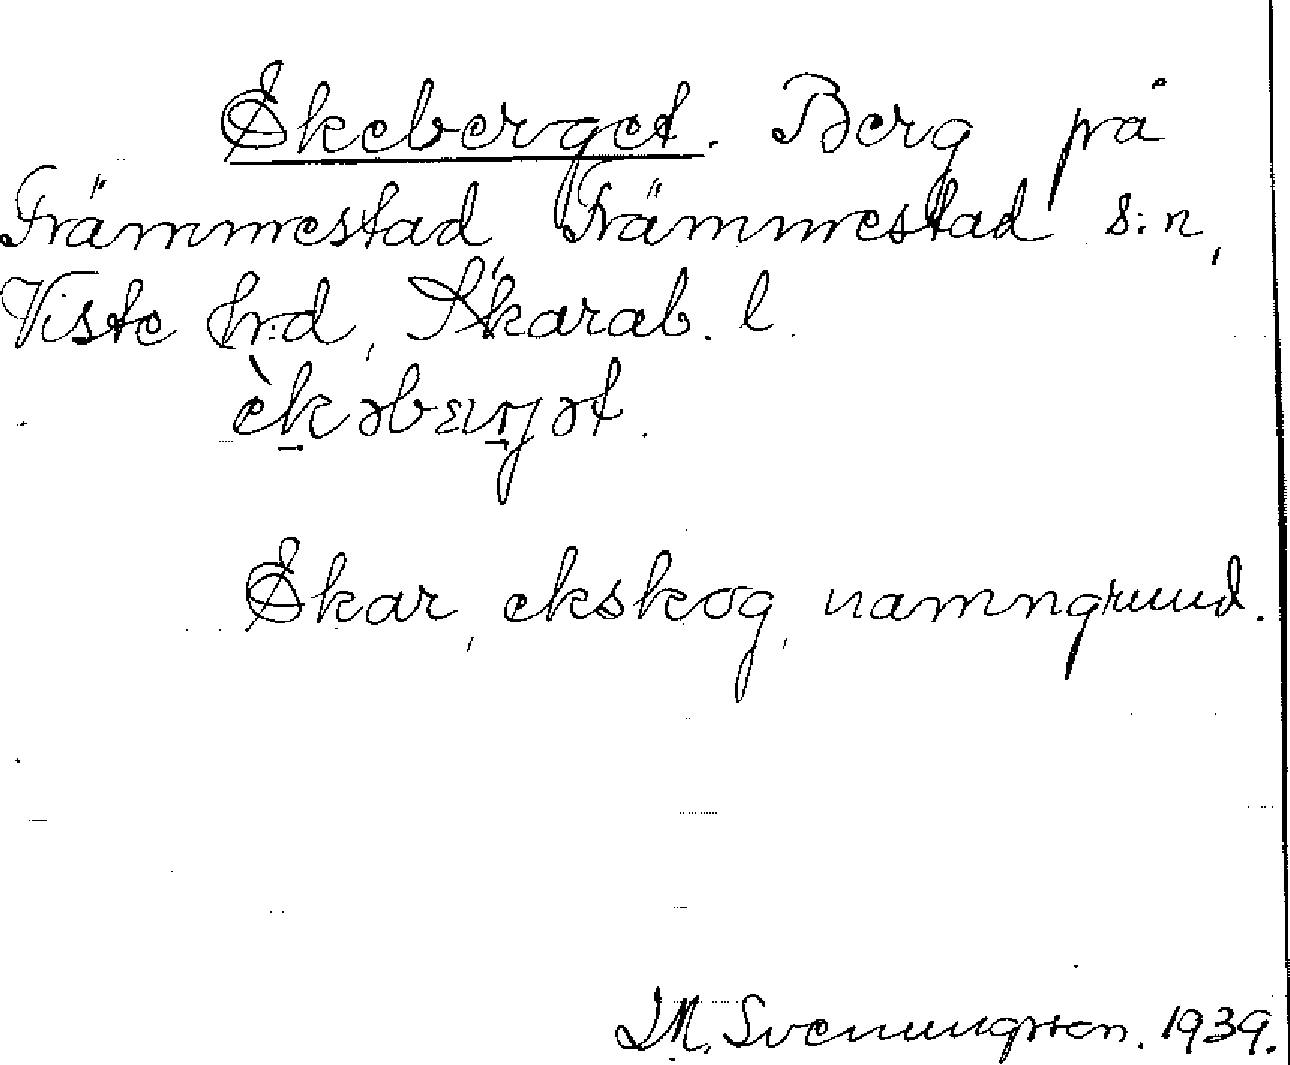 Ekeberget. Berg på
Främmestad Främmestad s:n,
Viste hrd, Skarab. l.
èkəbærjət.
Ekar, ekskog, namngrund.
I.M. Svenungsson. 1939.